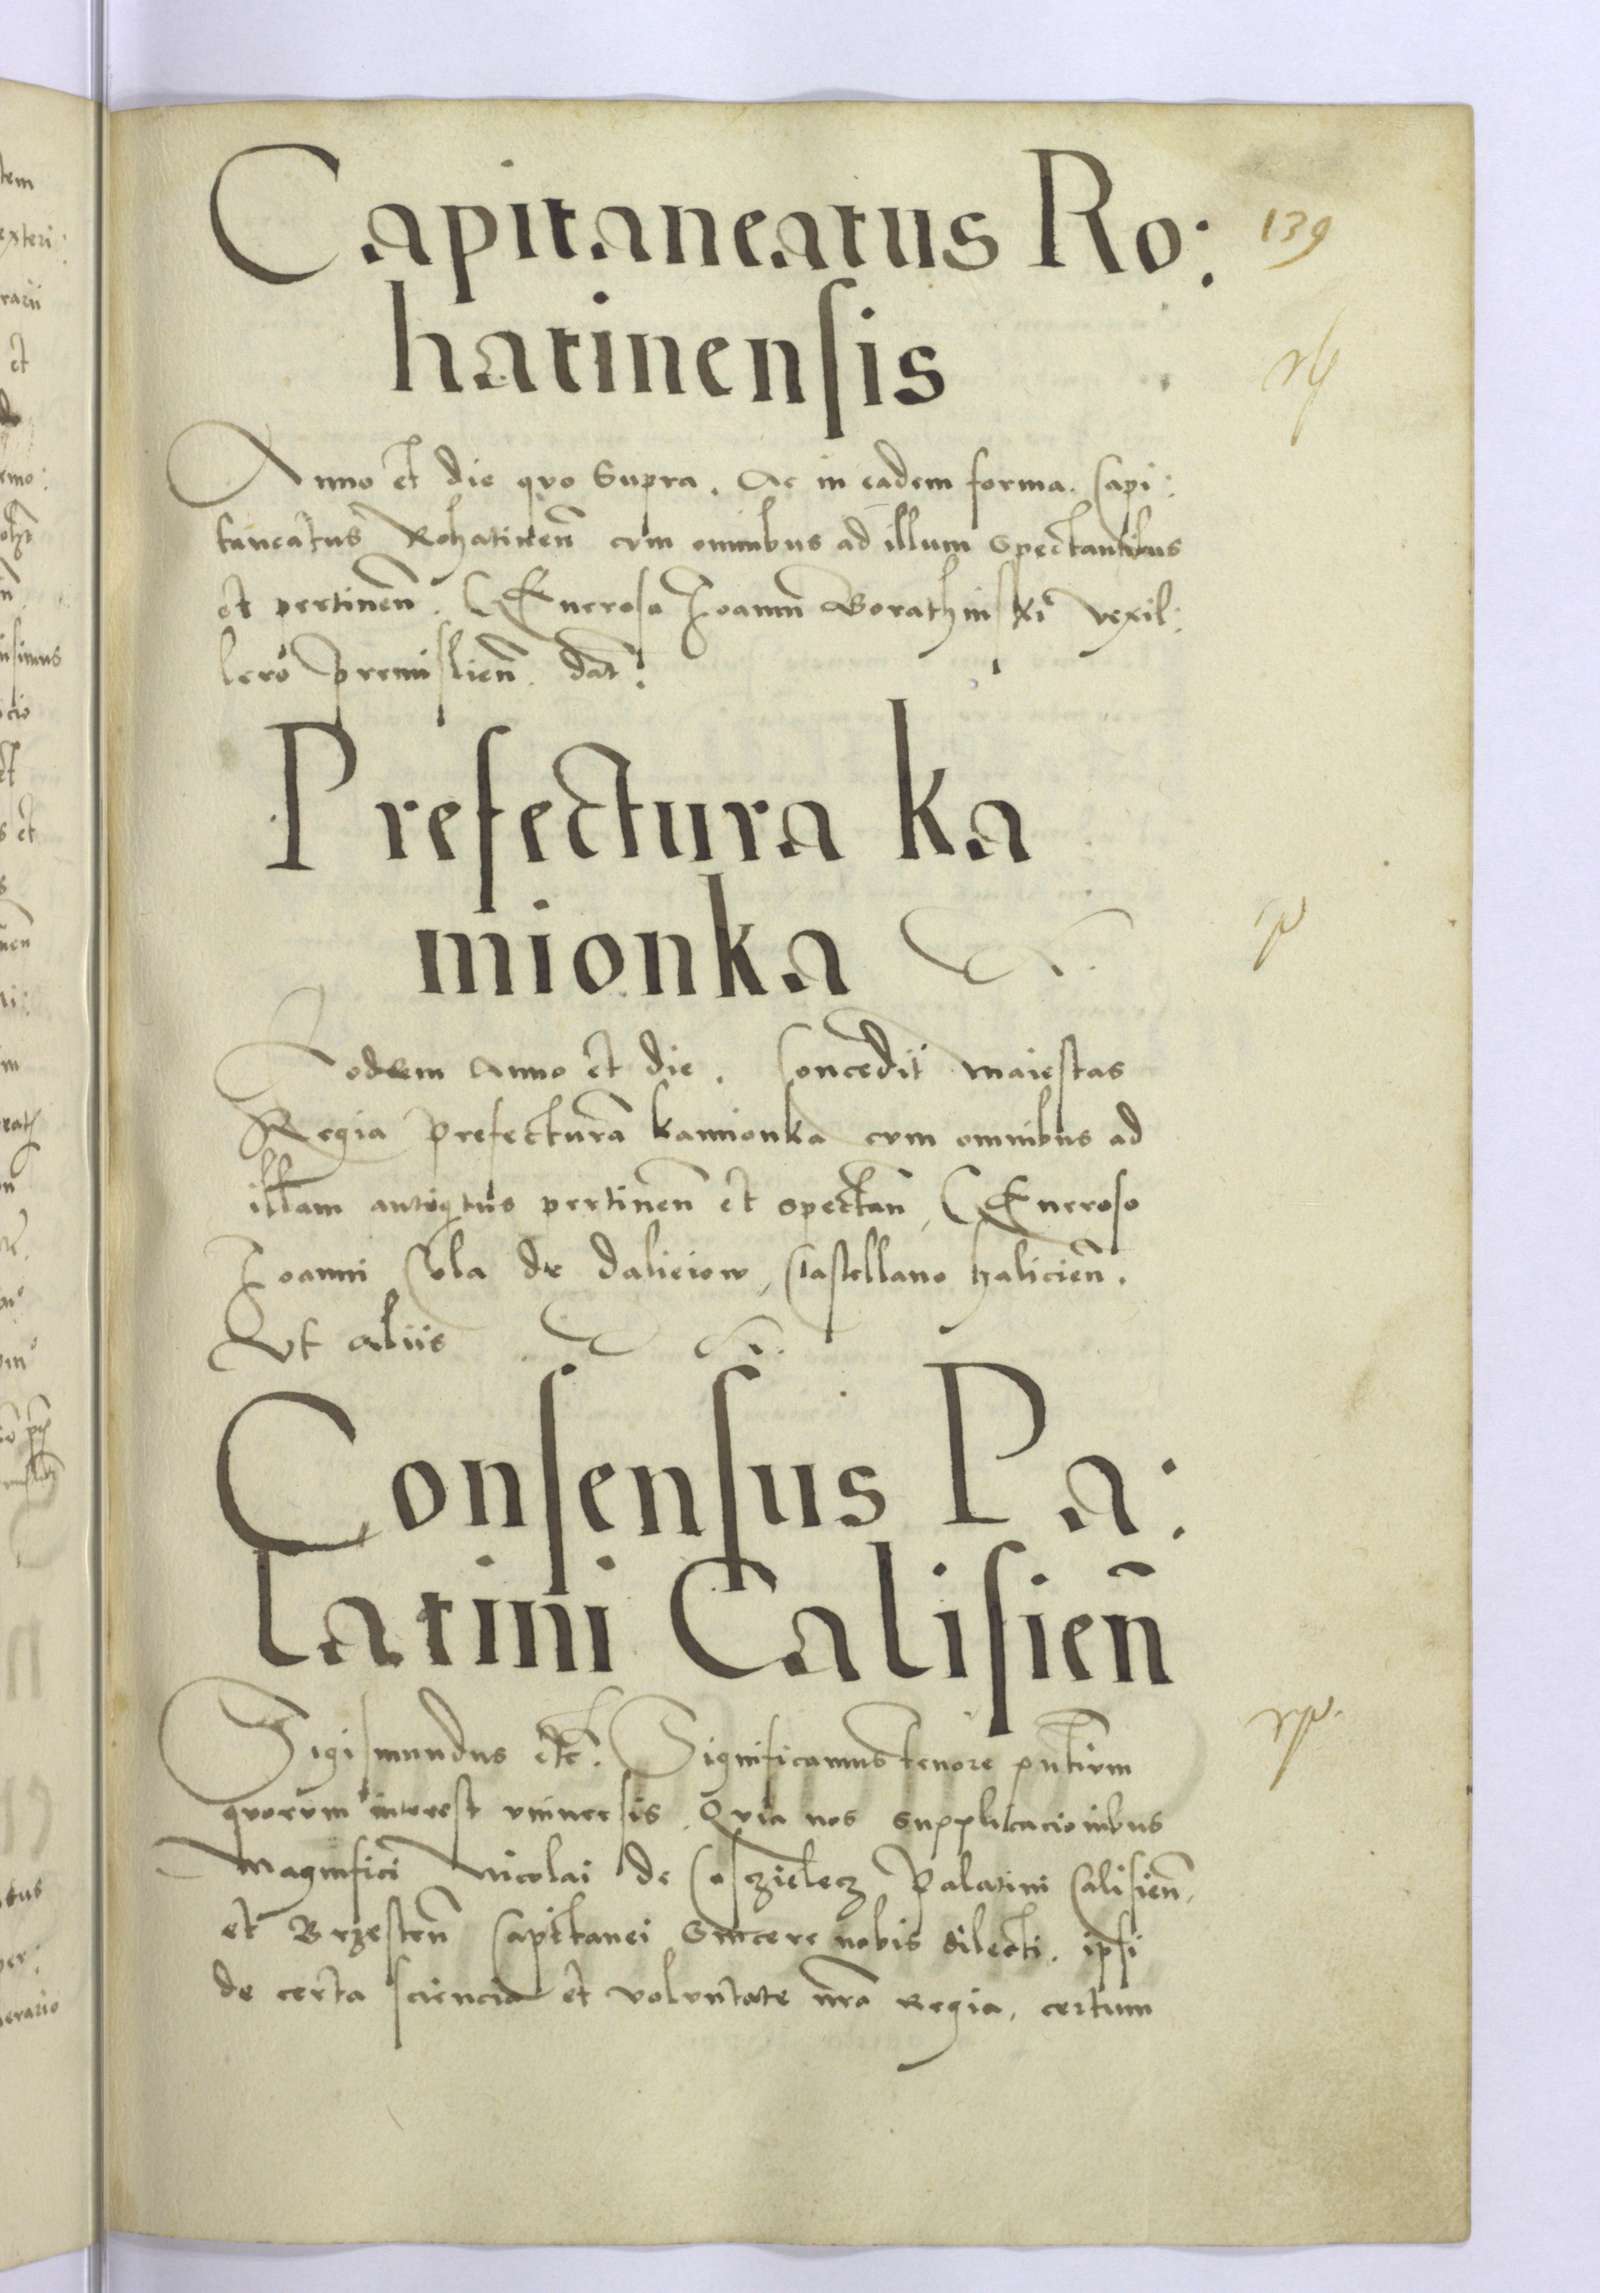 Capitaneatus Ro:
139
hatinensis
Anno et die quo Supra. Ac in eadem forma. Capi:
taneatus Rohatinen̄ cum omnibus ad illum Spectantibus
et pertinen̄. GEneroso Joanni Borathinski Vexil:
lero Premislien̄. dat:
Prefectura ka
mionka
Eodem Anno et die. Concedit Maiestas
Regia Prefecturā kamionka cum omnibus ad
illam antiquitus pertinen̄ et spectan̄, GEneroso
Joanni Cola de Daliciow, Castellano halicien̄.
Vt aliis
Consensus Pa:
latini Calisien̄
Sigismundus etc̄. Significamus tenore pn̄tium
quorum interest vniuersis. Quia nos supplicacionibus
Magnifici Nicolai de Cosczielecz Palatini Calisien̄.
et Brzesten̄ Capittanei Sincere nobis dilecti. ipsi
de certa sciencia et voluntate nr̄a Regia, certum